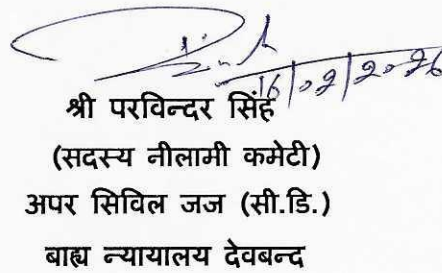 16/02/2026
श्री परविन्दर सिंह
(सदस्य नीलामी कमेटी)
अपर सिविल जज (सी.डि.)
बाह्य न्यायालय देवबन्द